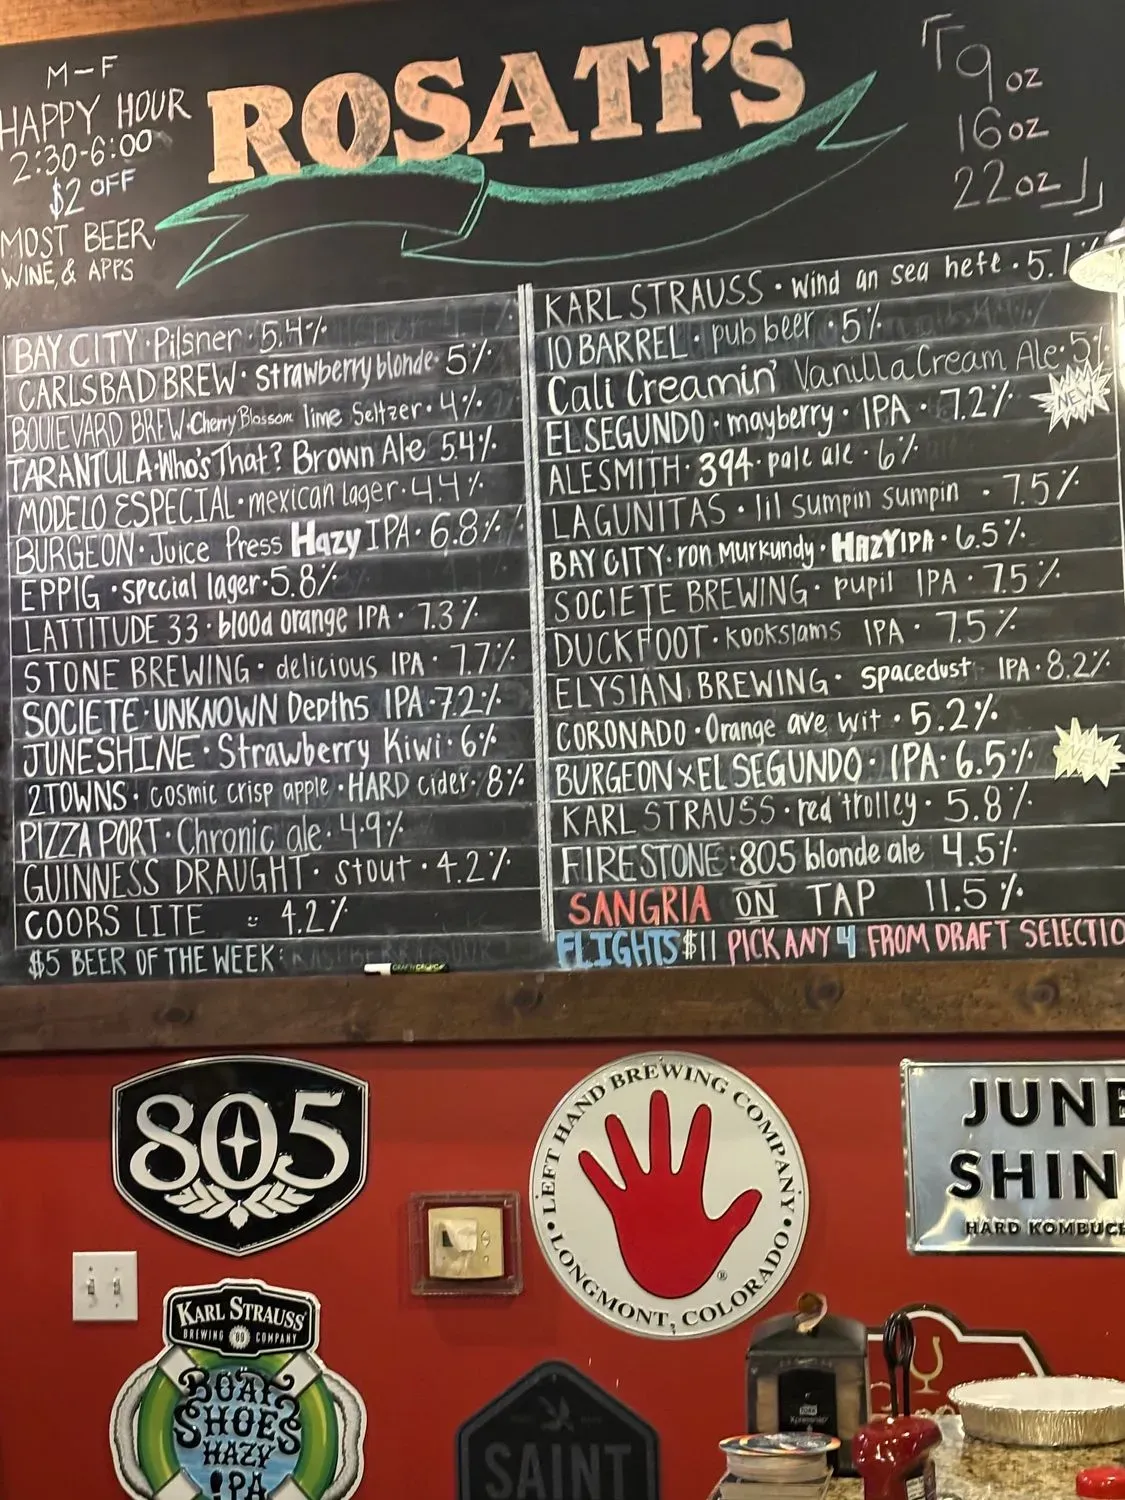 M-F
HAPPY HOUR
2:30-6:00
$2 OFF
MOST BEER
WINE, & APPS
ROSATI'S
9 oz
16 oz
22 oz
BAY CITY · Pilsner · 5.4%
CARLSBAD BREW · strawberry blonde · 5%
BOULEVARD BREW · Cherry Blossom lime Seltzer · 4%
TARANTULA · Who's That? Brown Ale 5.4%
MODELO ESPECIAL · mexican lager · 4.4%
BURGEON · Juice Press Hazy IPA · 6.8%
EPPIG · special lager · 5.8%
LATTITUDE 33 · blood orange IPA · 7.3%
STONE BREWING · delicious IPA · 7.7%
SOCIETE · UNKNOWN Depths IPA · 7.2%
JUNESHINE · Strawberry Kiwi · 6%
2TOWNS · cosmic crisp apple · HARD cider · 8%
PIZZA PORT · Chronic ale · 4.9%
GUINNESS DRAUGHT · stout · 4.2%
COORS LITE 4.2%
$5 BEER OF THE WEEK:
KARL STRAUSS · wind an sea hefe · 5.1%
10 BARREL · pub beer · 5%
Cali Creamin' Vanilla Cream Ale · 5%
EL SEGUNDO · mayberry · IPA · 7.2% NEW
ALESMITH · 394 · pale ale · 6%
LAGUNITAS · lil sumpin sumpin · 7.5%
BAY CITY · ron murkundy · HAZY IPA · 6.5%
SOCIETE BREWING · pupil IPA · 7.5%
DUCKFOOT · kookslams IPA · 7.5%
ELYSIAN BREWING · spacedust IPA · 8.2%
CORONADO · Orange ave wit · 5.2%
BURGEON x EL SEGUNDO · IPA · 6.5% NEW
KARL STRAUSS · red trolley · 5.8%
FIRESTONE · 805 blonde ale 4.5%
SANGRIA ON TAP 11.5%
FLIGHTS $11 PICK ANY 4 FROM DRAFT SELECTIO
805
LEFT HAND BREWING COMPANY
· LONGMONT, COLORADO ·
®
JUNE
SHIN
HARD KOMBUC
KARL STRAUSS
BREWING '89 COMPANY
BOAT
SHOES
HAZY
IPA
SAINT